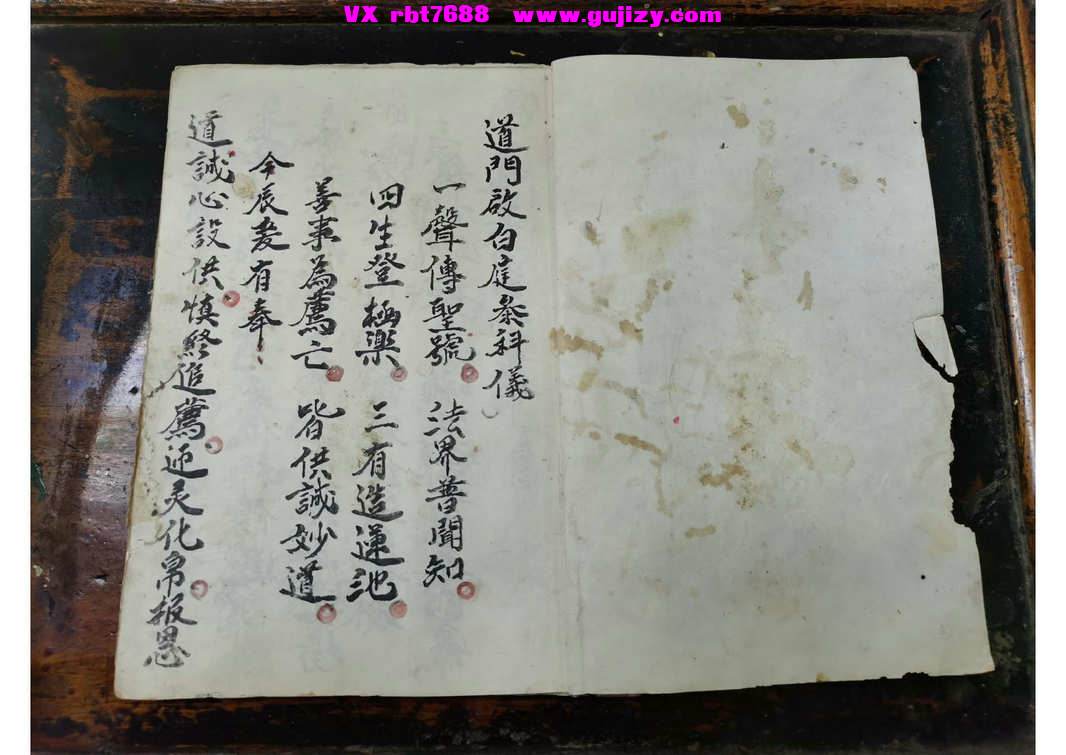 VX rbt7688 www.gujizy.com
道門啟白庭参科儀
一聲傳聖號 法界普聞知
四生登極樂 三有造蓮池
善事為薦亡 皆供誠妙道
今辰爰有奉
道誠心設供慎終追薦迎灵化帛报恩